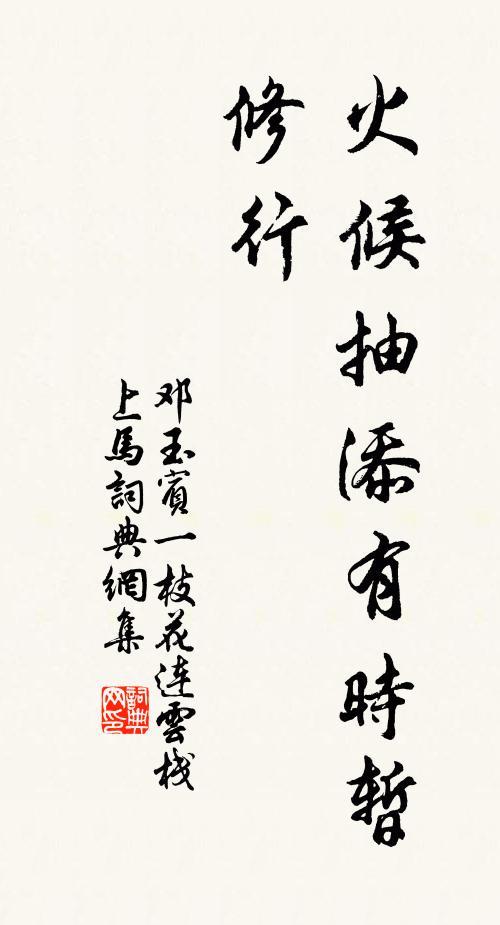 火候抽添有時暫
修行
邓玉賓一枝花連雲栈
上馬詞典網集
詞典网印